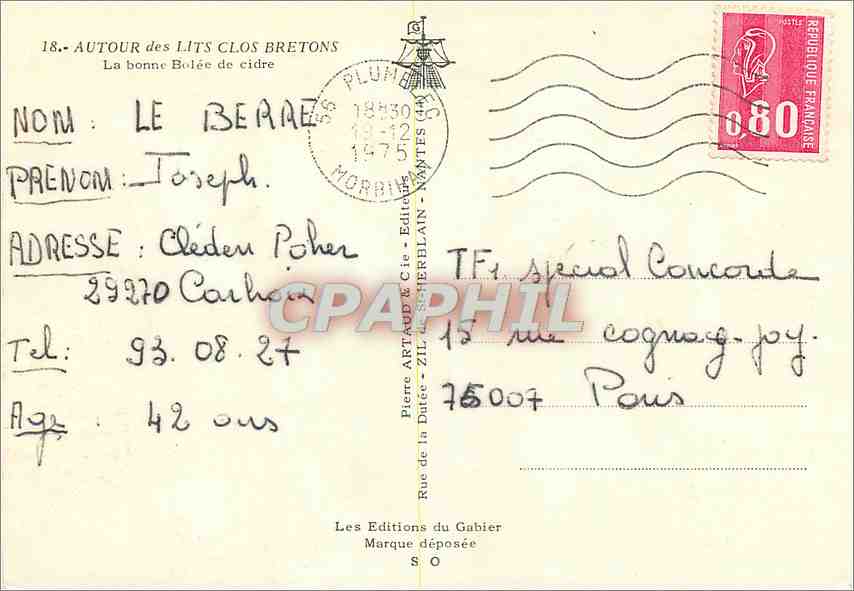 18.- AUTOUR des LITS CLOS BRETONS
La bonne Bolée de cidre
56 PLUME
18H30
19-12
1975
MORBIHAN
POSTES
REPUBLIQUE FRANÇAISE
0,80
NOM : LE BERRE
PRENOM : Joseph.
ADRESSE : Cléden Poher
29270 Carhaix
Tel : 93.08.27
Age : 42 ans
Pierre ARTAUD & Cie - Editeurs
Rue de la Dutée - ZIL de St-HERBLAIN - NANTES (44)
TF1 spécial Concorde
15 rue cognacq-jay.
75007 Paris
CPAPHIL
Les Editions du Gabier
Marque déposée
S O